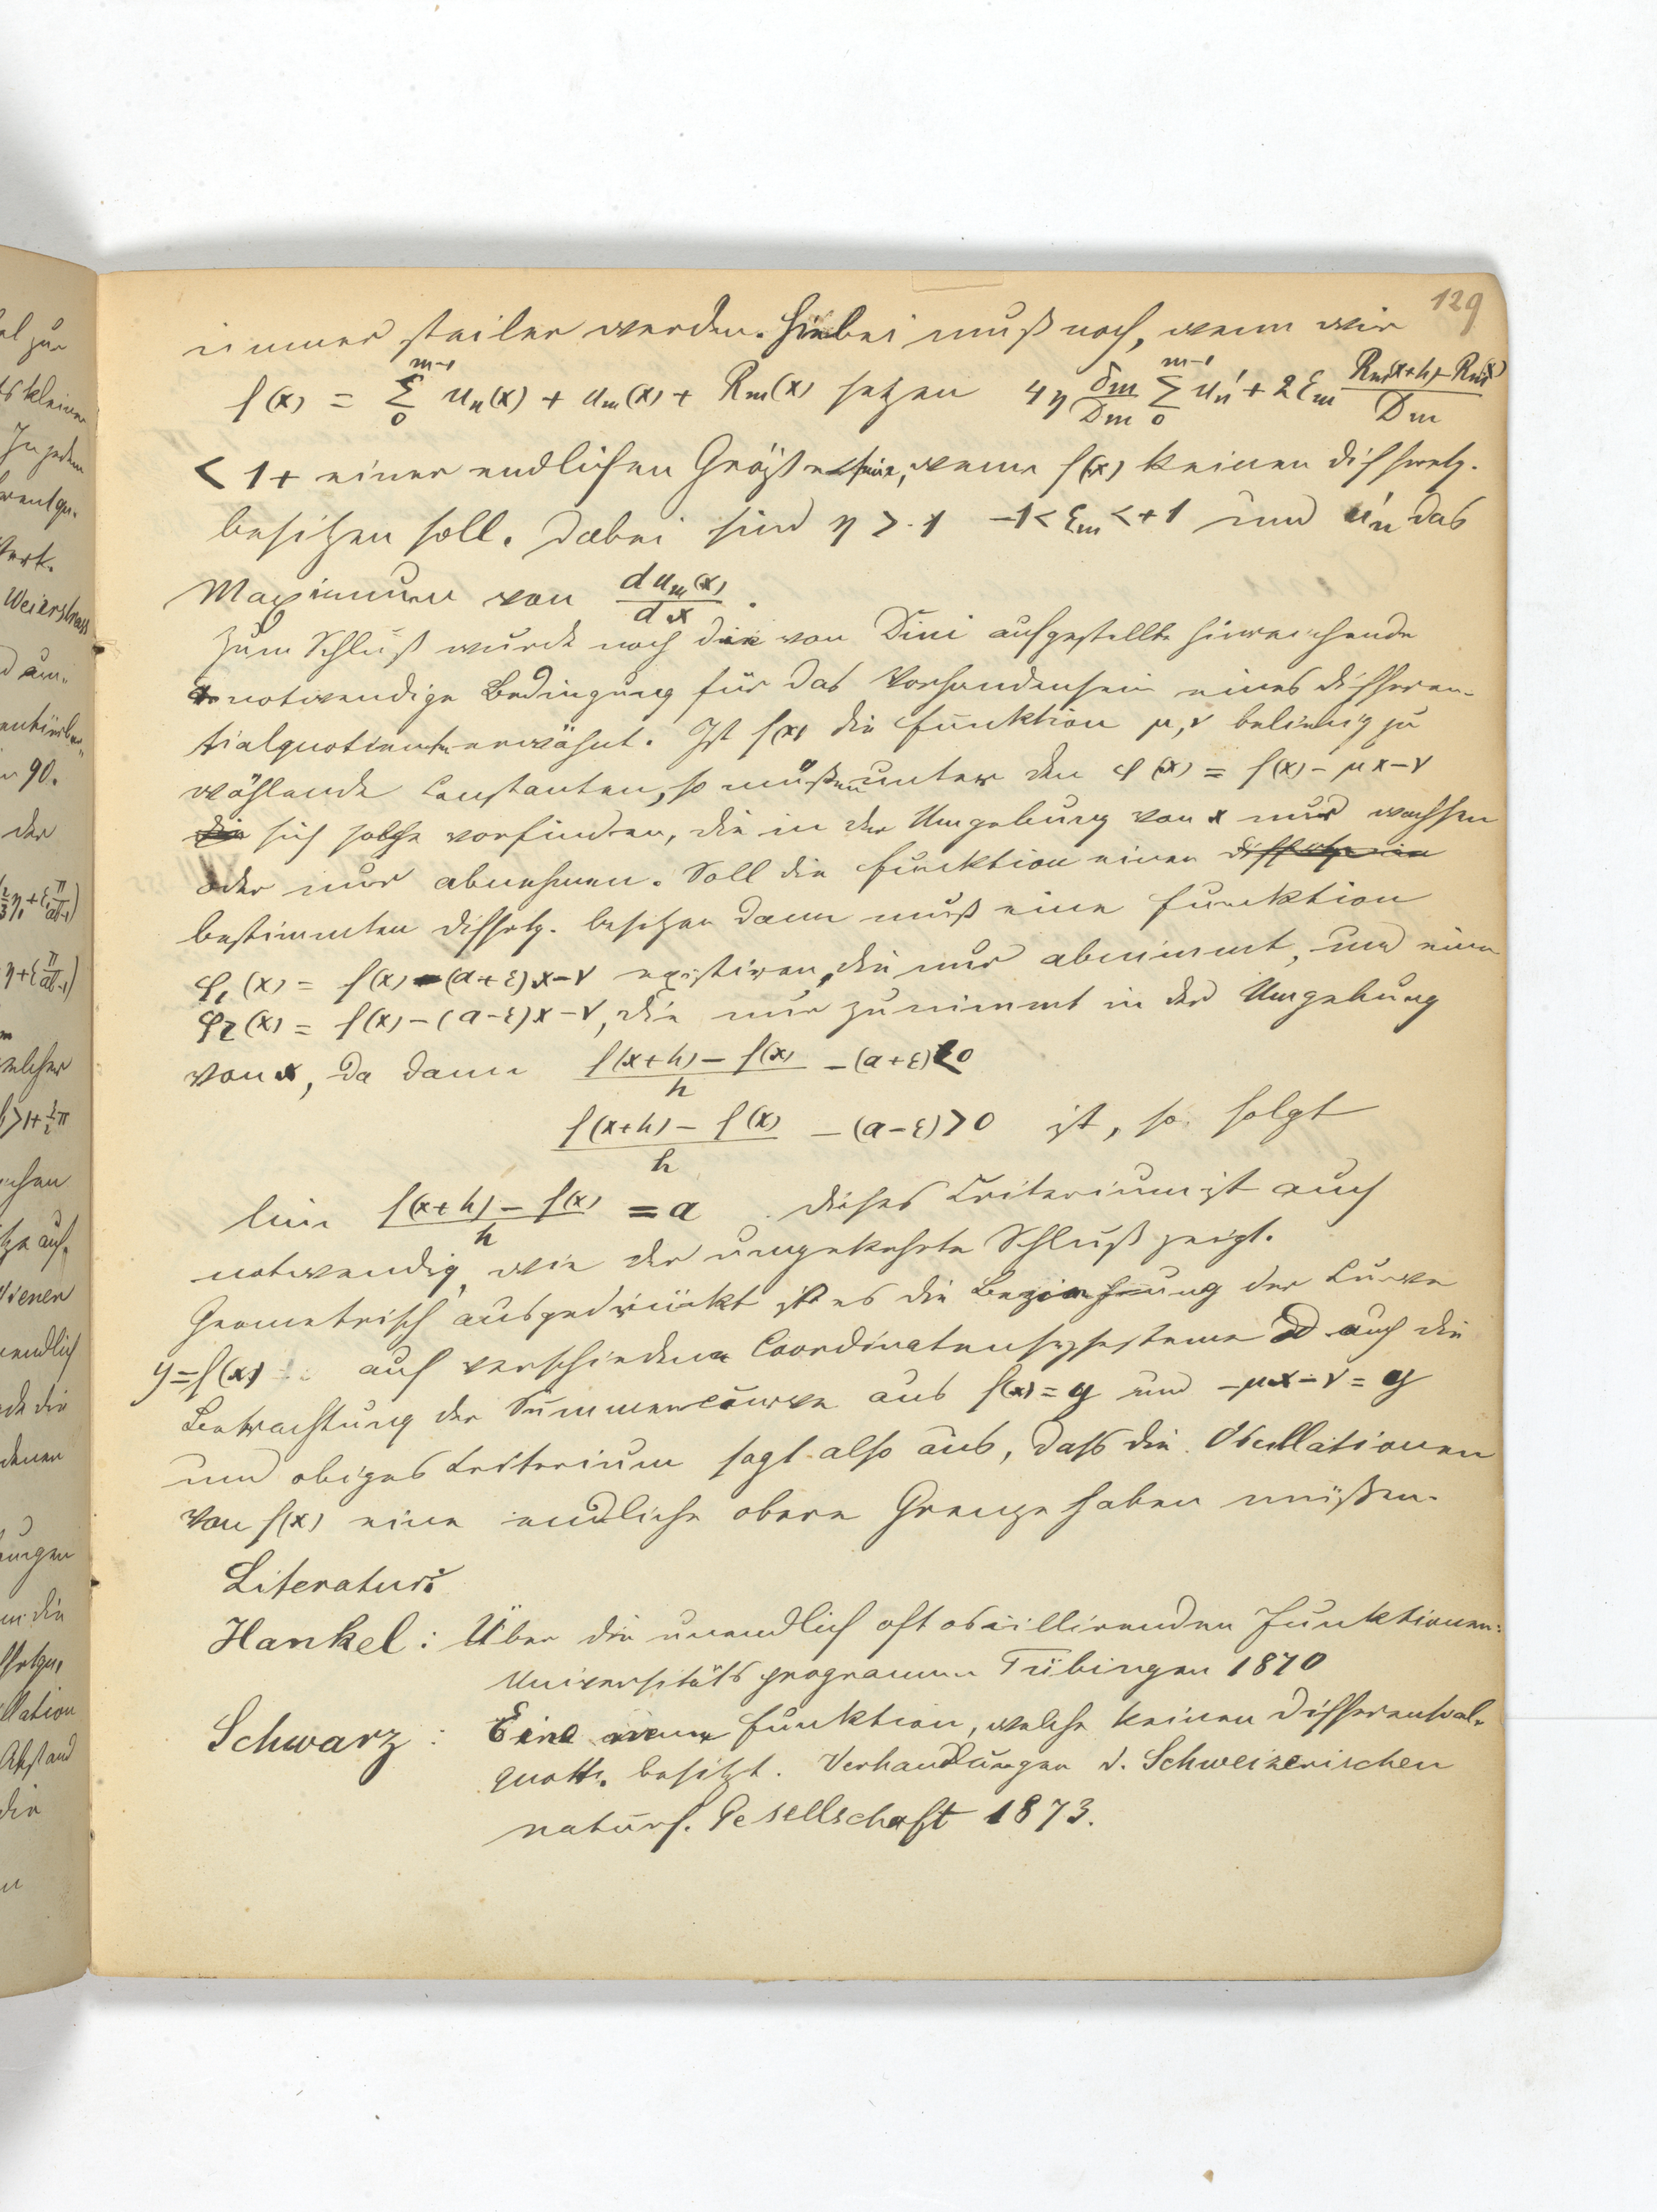 129
immer steiler werden. Hiebei muß noch, wenn wir
f(x) = Σ_0^{m-1} u_n(x) + u_m(x) + R_m(x) setzen 4η δm/Dm Σ_0^{m-1} u'_n + 2ε_m (R_m(x+h) - R_m(x))/Dm
< 1 + einer endlichen Größe sein, wenn f(x) keinen Diffquotz.
besitzen soll. Dabei sind η > 1 -1 < ε_m < +1 und u'_n das
Maximum von du_m(x)/dx.
Zum Schluß wurde noch die von Dini aufgestellte hinreichende
notwendige Bedingung für das Vorhandensein eines Differen-
tialquotienten erwähnt. Ist f(x) die Funktion μ, ν beliebig zu
wählende Constanten, so müßen unter den φ(x) = f(x) - μx - ν
die sich solche vorfinden, die in der Umgebung von x nur wachsen
oder nur abnehmen. Soll die Funktion einen
bestimmten Diffqtz. besitzen dann muß eine Funktion
φ₁(x) = f(x) - (a+ε)x - ν existiren, die nur abnimmt, und eine
φ₂(x) = f(x) - (a-ε)x - ν, die nur zunimmt in der Umgebung
von x, da dann (f(x+h) - f(x))/h - (a+ε) < 0
(f(x+h) - f(x))/h - (a-ε) > 0 ist, so folgt
lim (f(x+h) - f(x))/h = a. Dieses Criterium ist auch
notwendig, wie der umgekehrte Schluß zeigt.
Geometrisch ausgedrückt ist es die Beziehung der Curve
y = f(x) auf verschiedene Coordinatensysteme od auch die
Betrachtung der Summencurve aus f(x) = y und -μx - ν = y
und obiges Criterium sagt also aus, dass die Oscillationen
von f(x) eine endliche obere Grenze haben müßen.
Literatur:
Hankel: Über die unendlich oft oscillirenden Funktionen:
Universitätsprogramm Tübingen 1870
Schwarz: Eine neue Funktion, welche keinen Differential-
quott. besitzt. Verhandlungen d. Schweizerischen
naturf. Gesellschaft 1873.